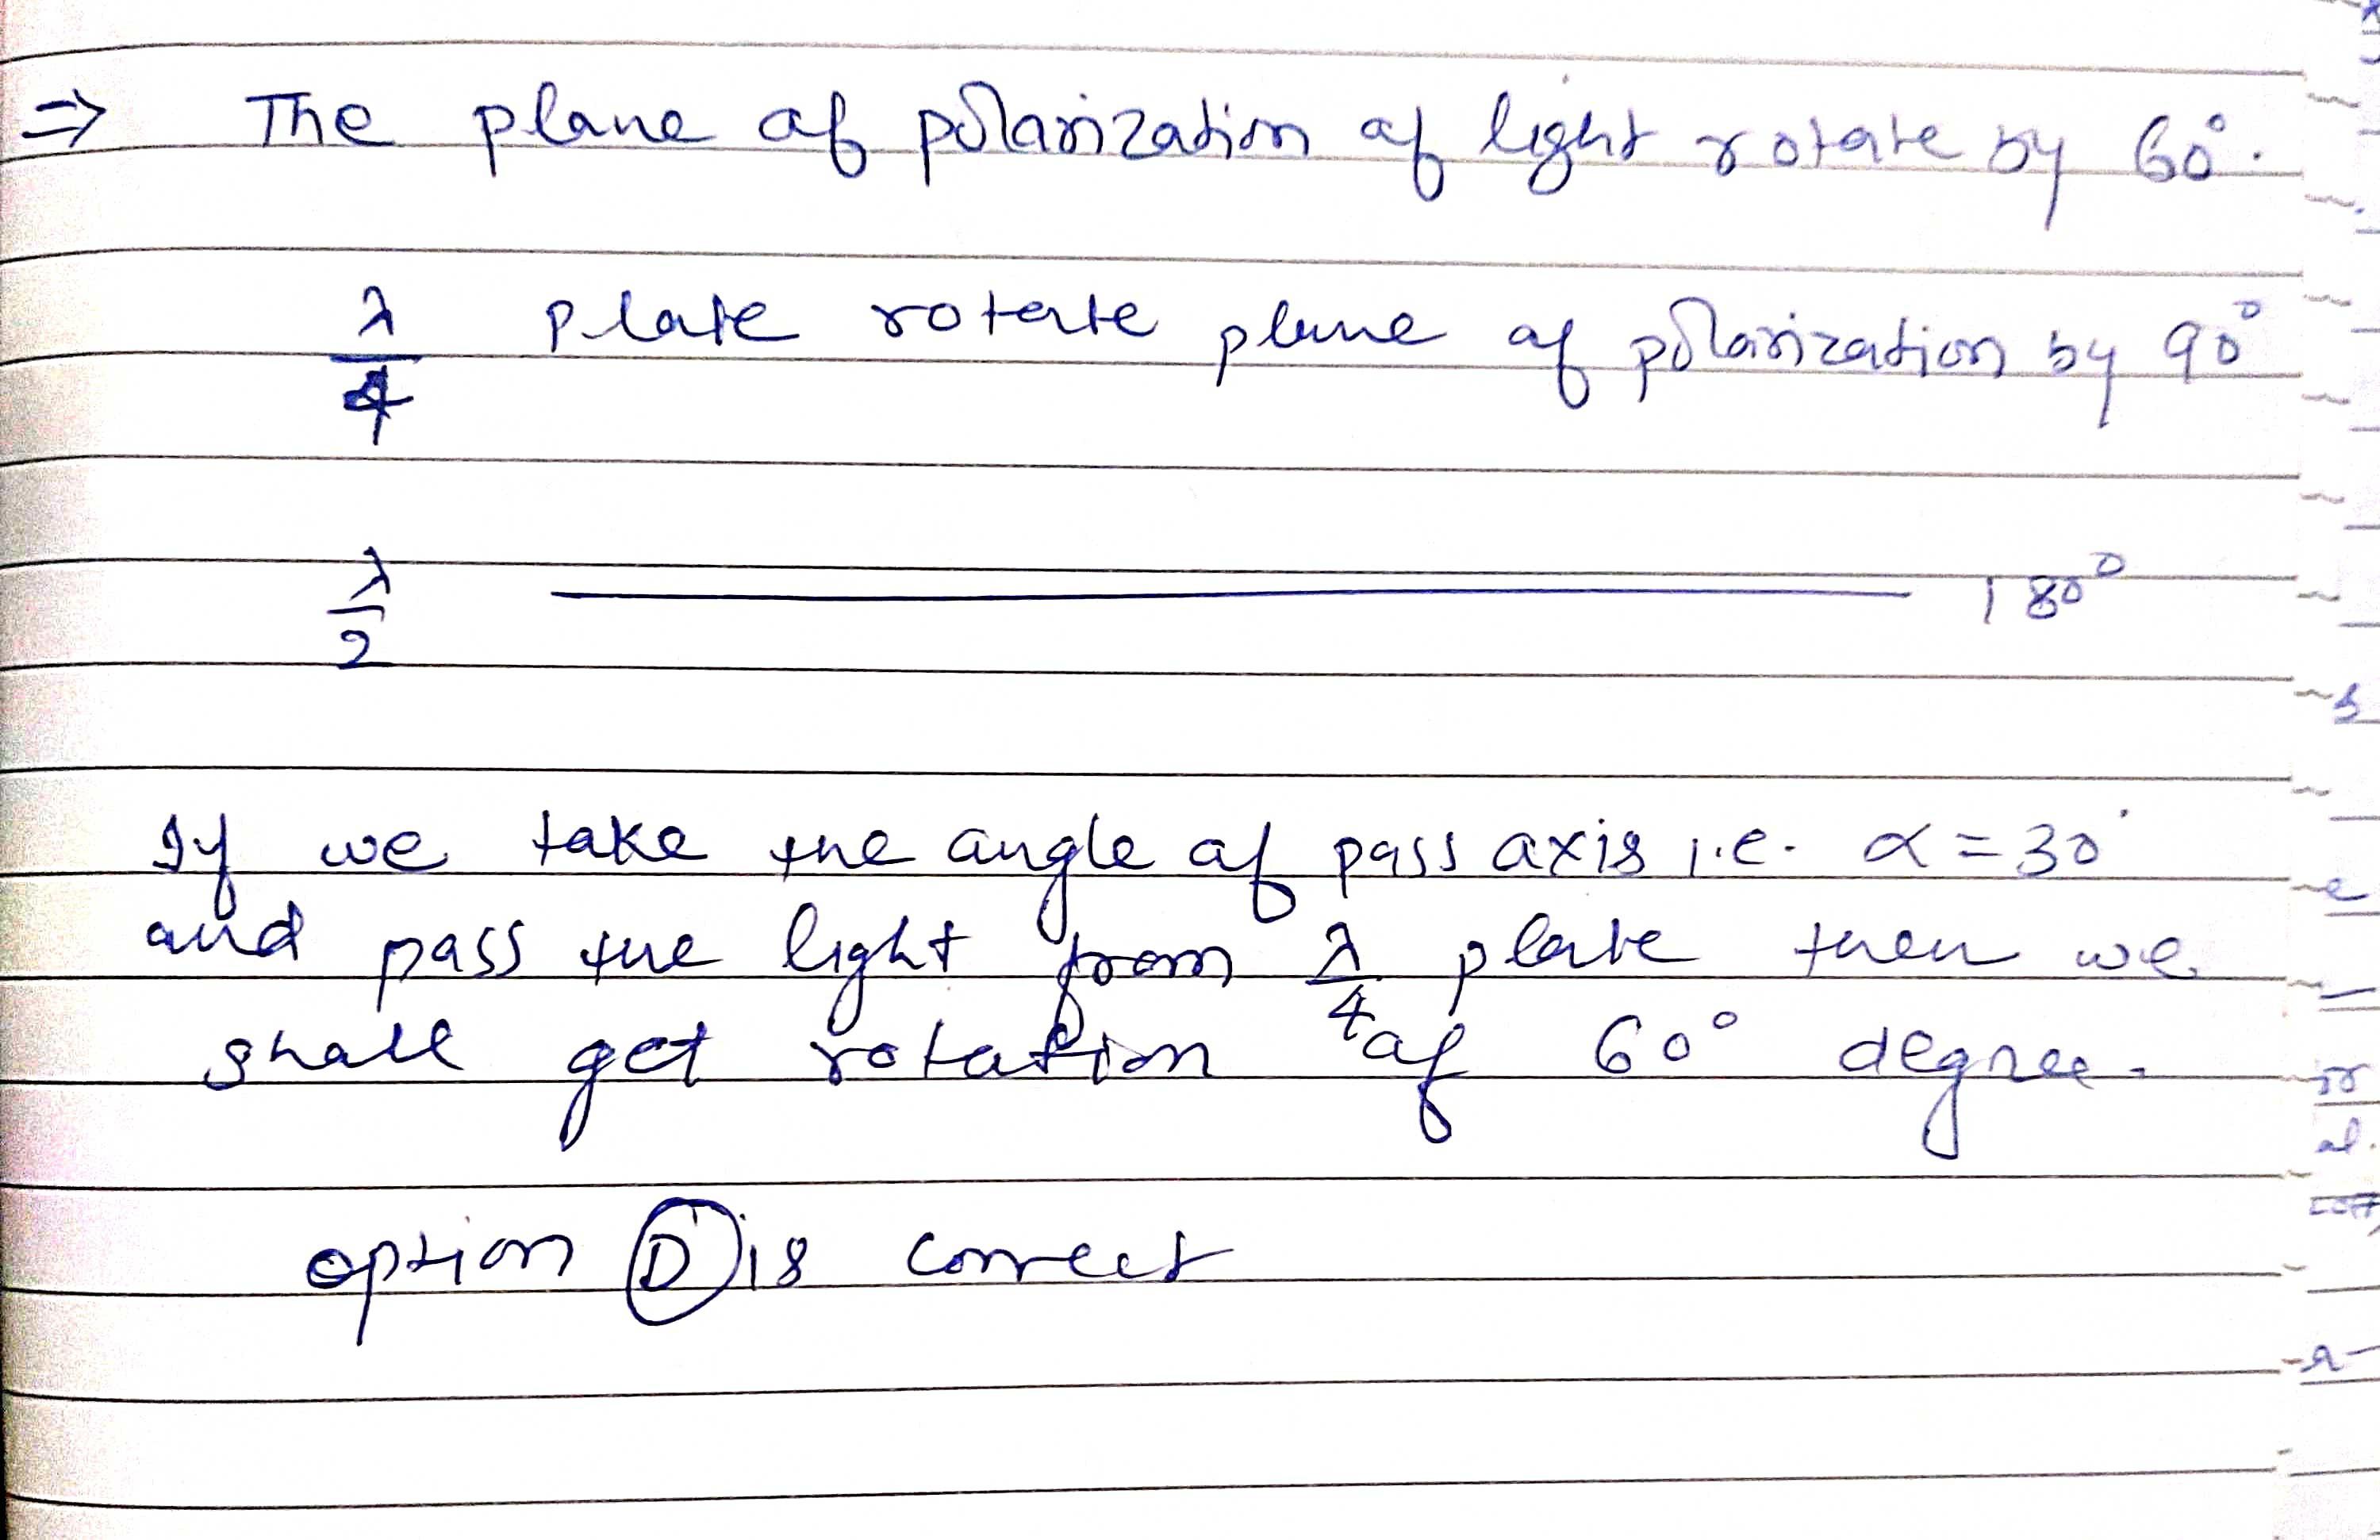 ⇒ The plane of polarization of light rotate by 60°.
λ/4 plate rotate plane of polarization by 90°
λ/2 ———— 180°
If we take the angle of pass axis i.e. α = 30°
and pass the light from λ/4 plate then we
shall get rotation of 60° degree.
option (D) is correct